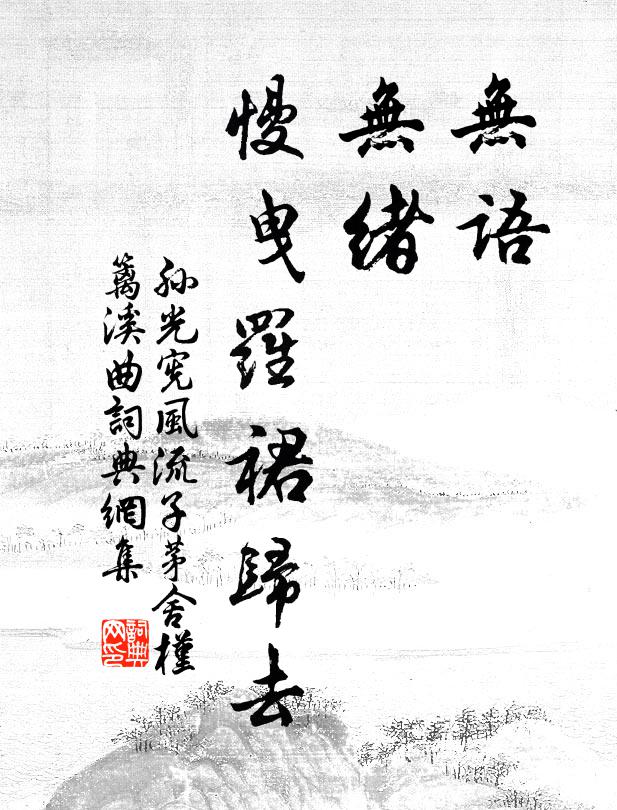 無語
無緒
慢曳羅裙歸去
孙光宪風流子茅舍槿
篱溪曲詞典網集
詞典網印